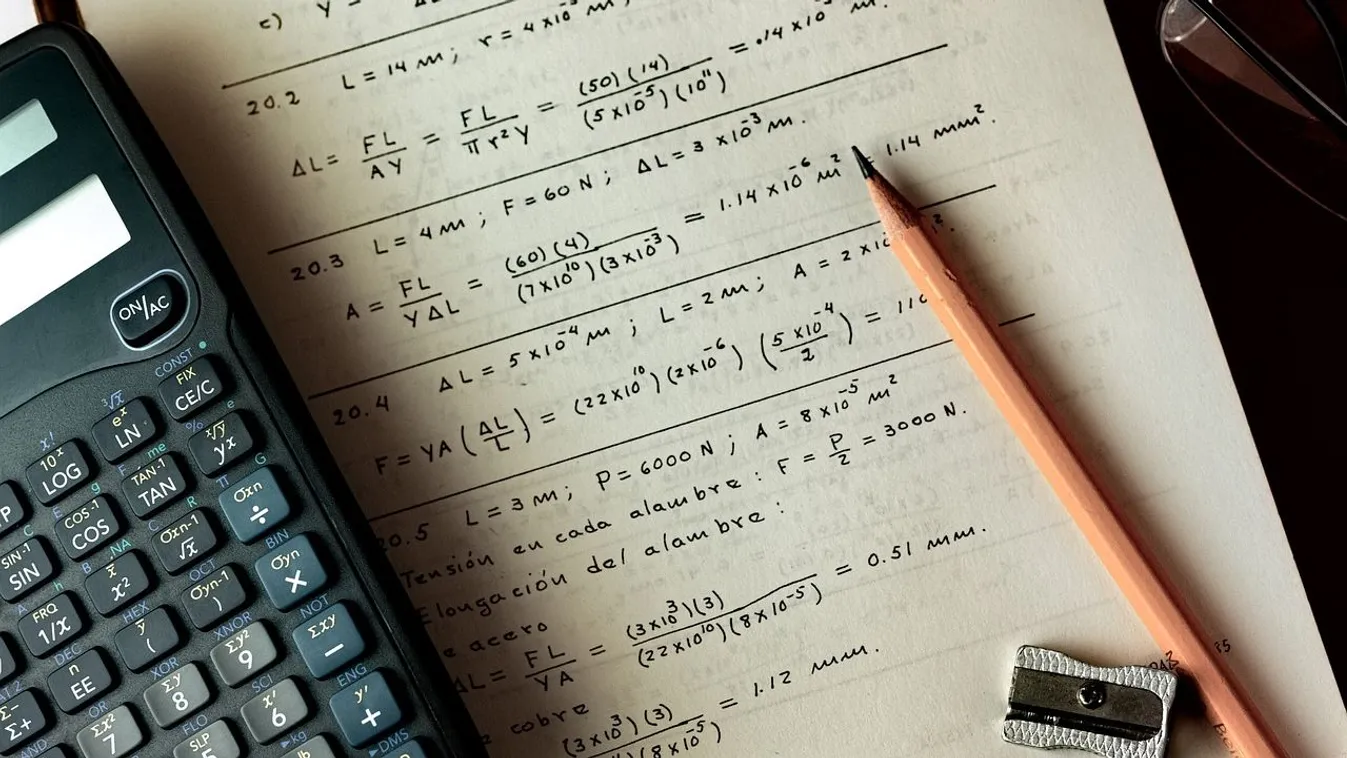 c) Y
20.2 L = 14 m; r = 4 x 10⁻³ m,
ΔL = FL/AY = FL/πr²Y = (50)(14)/(5x10⁻⁵)(10¹¹) = .14 x 10⁻³ m.
20.3 L = 4 m; F = 60 N; ΔL = 3 x 10⁻³ m.
A = FL/YΔL = (60)(4)/(7x10¹⁰)(3x10⁻³) = 1.14 x 10⁻⁶ m² = 1.14 mm².
20.4 ΔL = 5 x 10⁻⁴ m; L = 2 m; A = 2 x 10
F = YA (ΔL/L) = (22x10¹⁰)(2x10⁻⁶) (5x10⁻⁴/2) = 110
20.5 L = 3 m; P = 6000 N; A = 8 x 10⁻⁵ m²
Tensión en cada alambre: F = P/2 = 3000 N.
Elongación del alambre:
e acero
ΔL = FL/YA = (3x10³)(3)/(22x10¹⁰)(8x10⁻⁵) = 0.51 mm.
e cobre
(3x10³)(3)/(8x10⁻⁵) = 1.12 mm.
ON/AC
CONST
FIX
CE/C
³√x
eˣ
LN
% e
x√y
yx
x!
10ˣ
LOG
F me
TAN-1
TAN
π G
σxn
÷
P
E g
COS-1
COS
C R
σxn-1
√x
BIN
σyn
×
C
SIN-1
SIN
B NA
x̄
x²
OCT
σyn-1
)
NOT
Σxy
−
A h
FRQ
1/x
HEX
ȳ
(
XNOR
Σy²
9
ENG
y'
+
DEC
n
EE
XOR
Σy
8
SCI
x'
6
▶DMS
AT2
Σ−
Σ+
OR
Σx²
7
FLO
SLP
5
▶kg
lb
AND